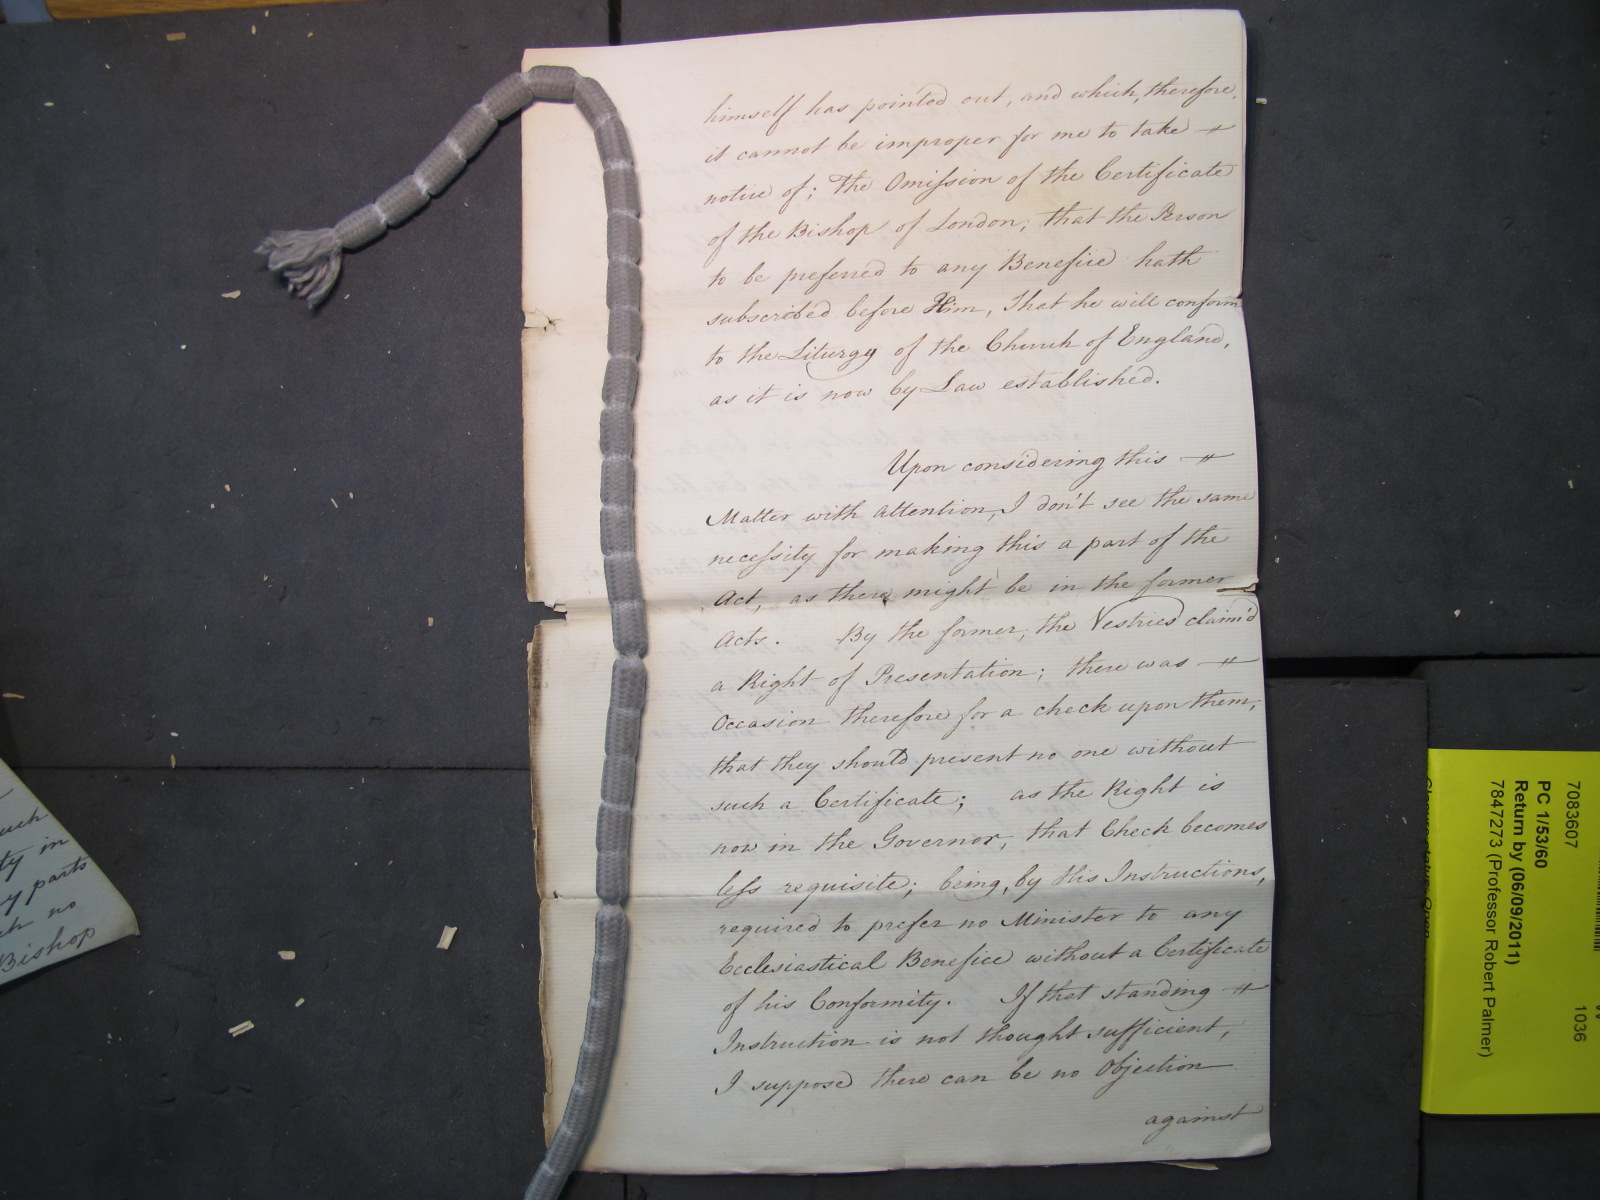 himself has pointed out, and which, therefore,
it cannot be improper for me to take
notice of; the Omission of the Certificate
of the Bishop of London; that the Person
to be preferred to any Benefice hath
subscribed before Him, That he will conform
to the Liturgy of the Church of England,
as it is now by Law established.
Upon considering this
Matter with attention, I don't see the same
necessity for making this a part of the
Act, as there might be in the former
Acts. By the former, the Vestries claim'd
a Right of Presentation; there was
Occasion therefore for a check upon them,
that they should present no one without
such a Certificate; as the Right is
now in the Governor, that Check becomes
less requisite; being, by His Instructions,
required to prefer no Minister to any
Ecclesiastical Benefice without a Certificate
of his Conformity. If that standing
Instruction is not thought sufficient,
I suppose there can be no Objection
against
such
ty in
y parts
ch no
Bishop
7083607
PC 1/53/60
Return by (06/09/2011)
7847273 (Professor Robert Palmer)
1036